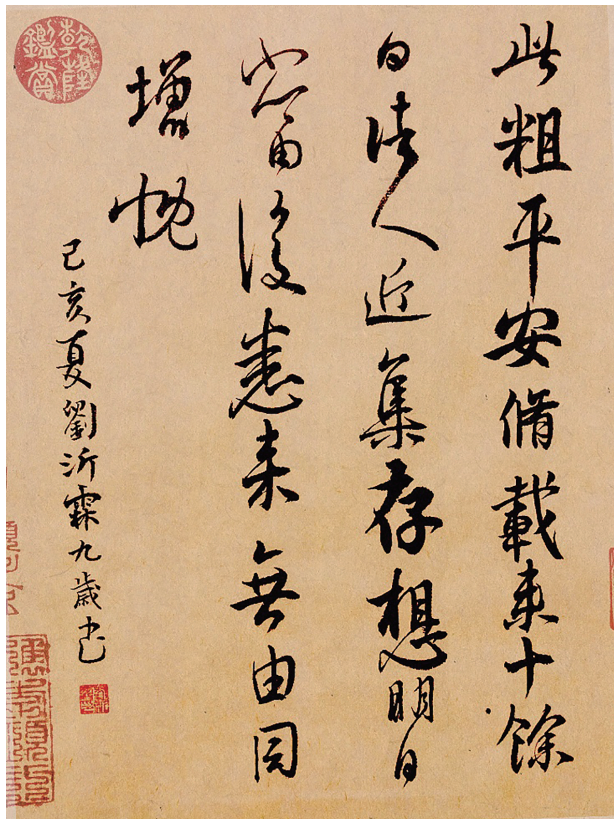 此粗平安脩載来十餘
日諸人近集存想明日
當復悉来無由同
增慨
己亥夏劉沂霖九歲書
乾隆鑑賞